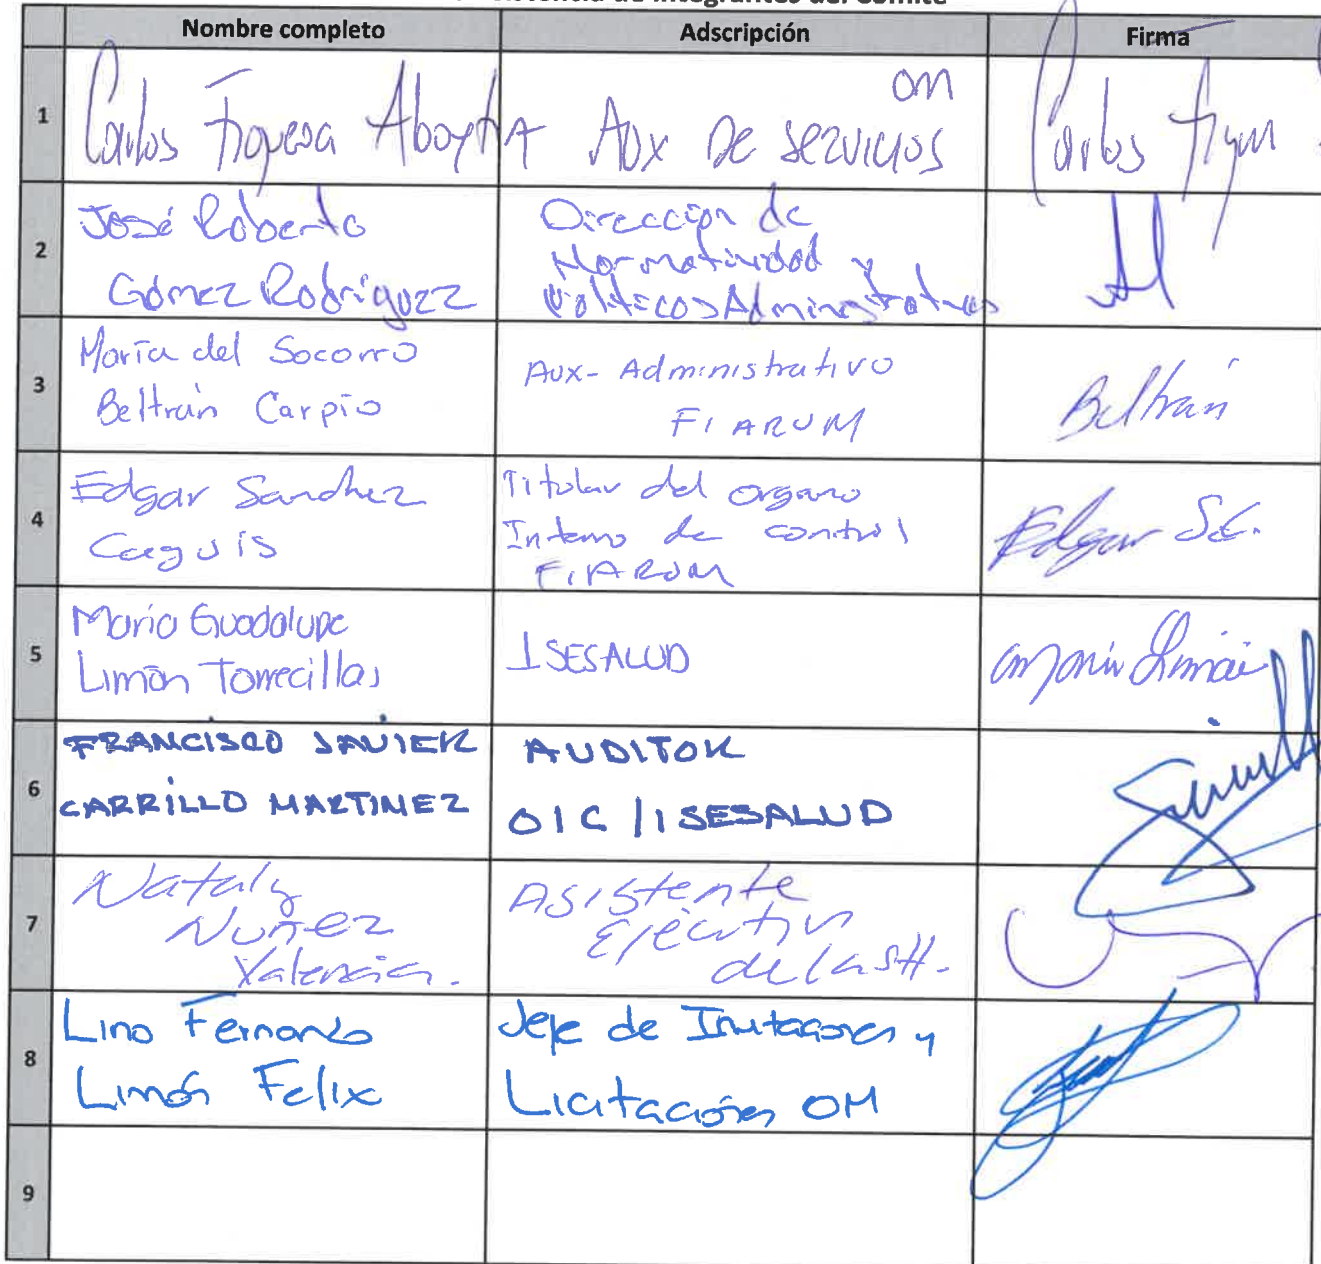 de Integrantes del Comité
Nombre completo Adscripción Firma
1 Carlos Figueroa Aux De servicios OM Carlos
2 José Roberto Gómez Rodríguez Dirección de Normatividad y Políticas Administrativas
3 María del Socorro Beltrán Carpio Aux- Administrativo FIARUM Beltrán
4 Edgar Sanchez Titular del organo Interno de control FIARUM Edgar S.C.
5 María Guadalupe Limón Torrecillas ISESALUD
6 FRANCISCO JAVIER CARRILLO MARTINEZ AUDITOR OIC / ISESALUD
7 Nataly Nuñez Valencia. Asistente Ejecutiva de la SH.
8 Lino Fernando Limón Felix Jefe de Invitaciones y Licitaciones OM
9